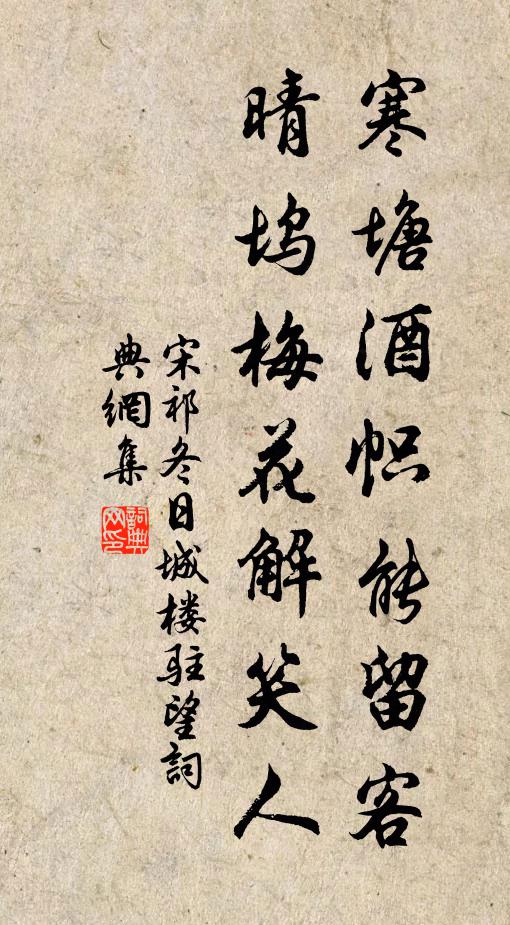 寒塘酒帜能留客
晴坞梅花解笑人
宋祁冬日城楼驻望詞
典網集
詞典网印